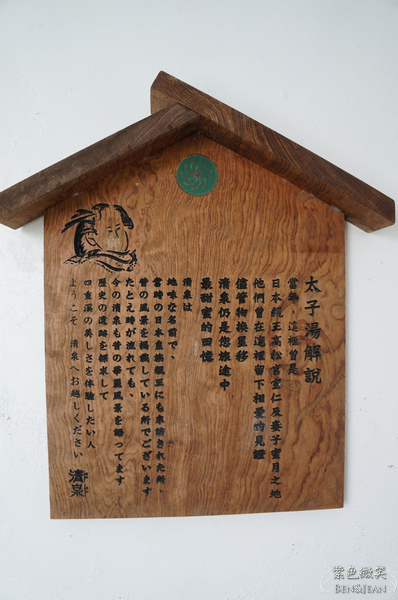 太子湯解說
當年，這裡曾是
日本親王高松宮宣仁及妻子蜜月之地
他們曾在這裡留下相愛的見證
儘管物換星移
清泉仍是您旅途中
最甜蜜的回憶
清泉は
地味な名前で、
當時の日本皇族親王にも來訪された所、
昔の風景を満載している所でございます
たとえ時が流れても、
今の清泉も昔の華麗風景を語ってます
歷史の遺跡を探求して
四重溪の美しさを体驗したい人
ようこそ 清泉へお越しください
清泉
紫色微笑
BEN&JEAN